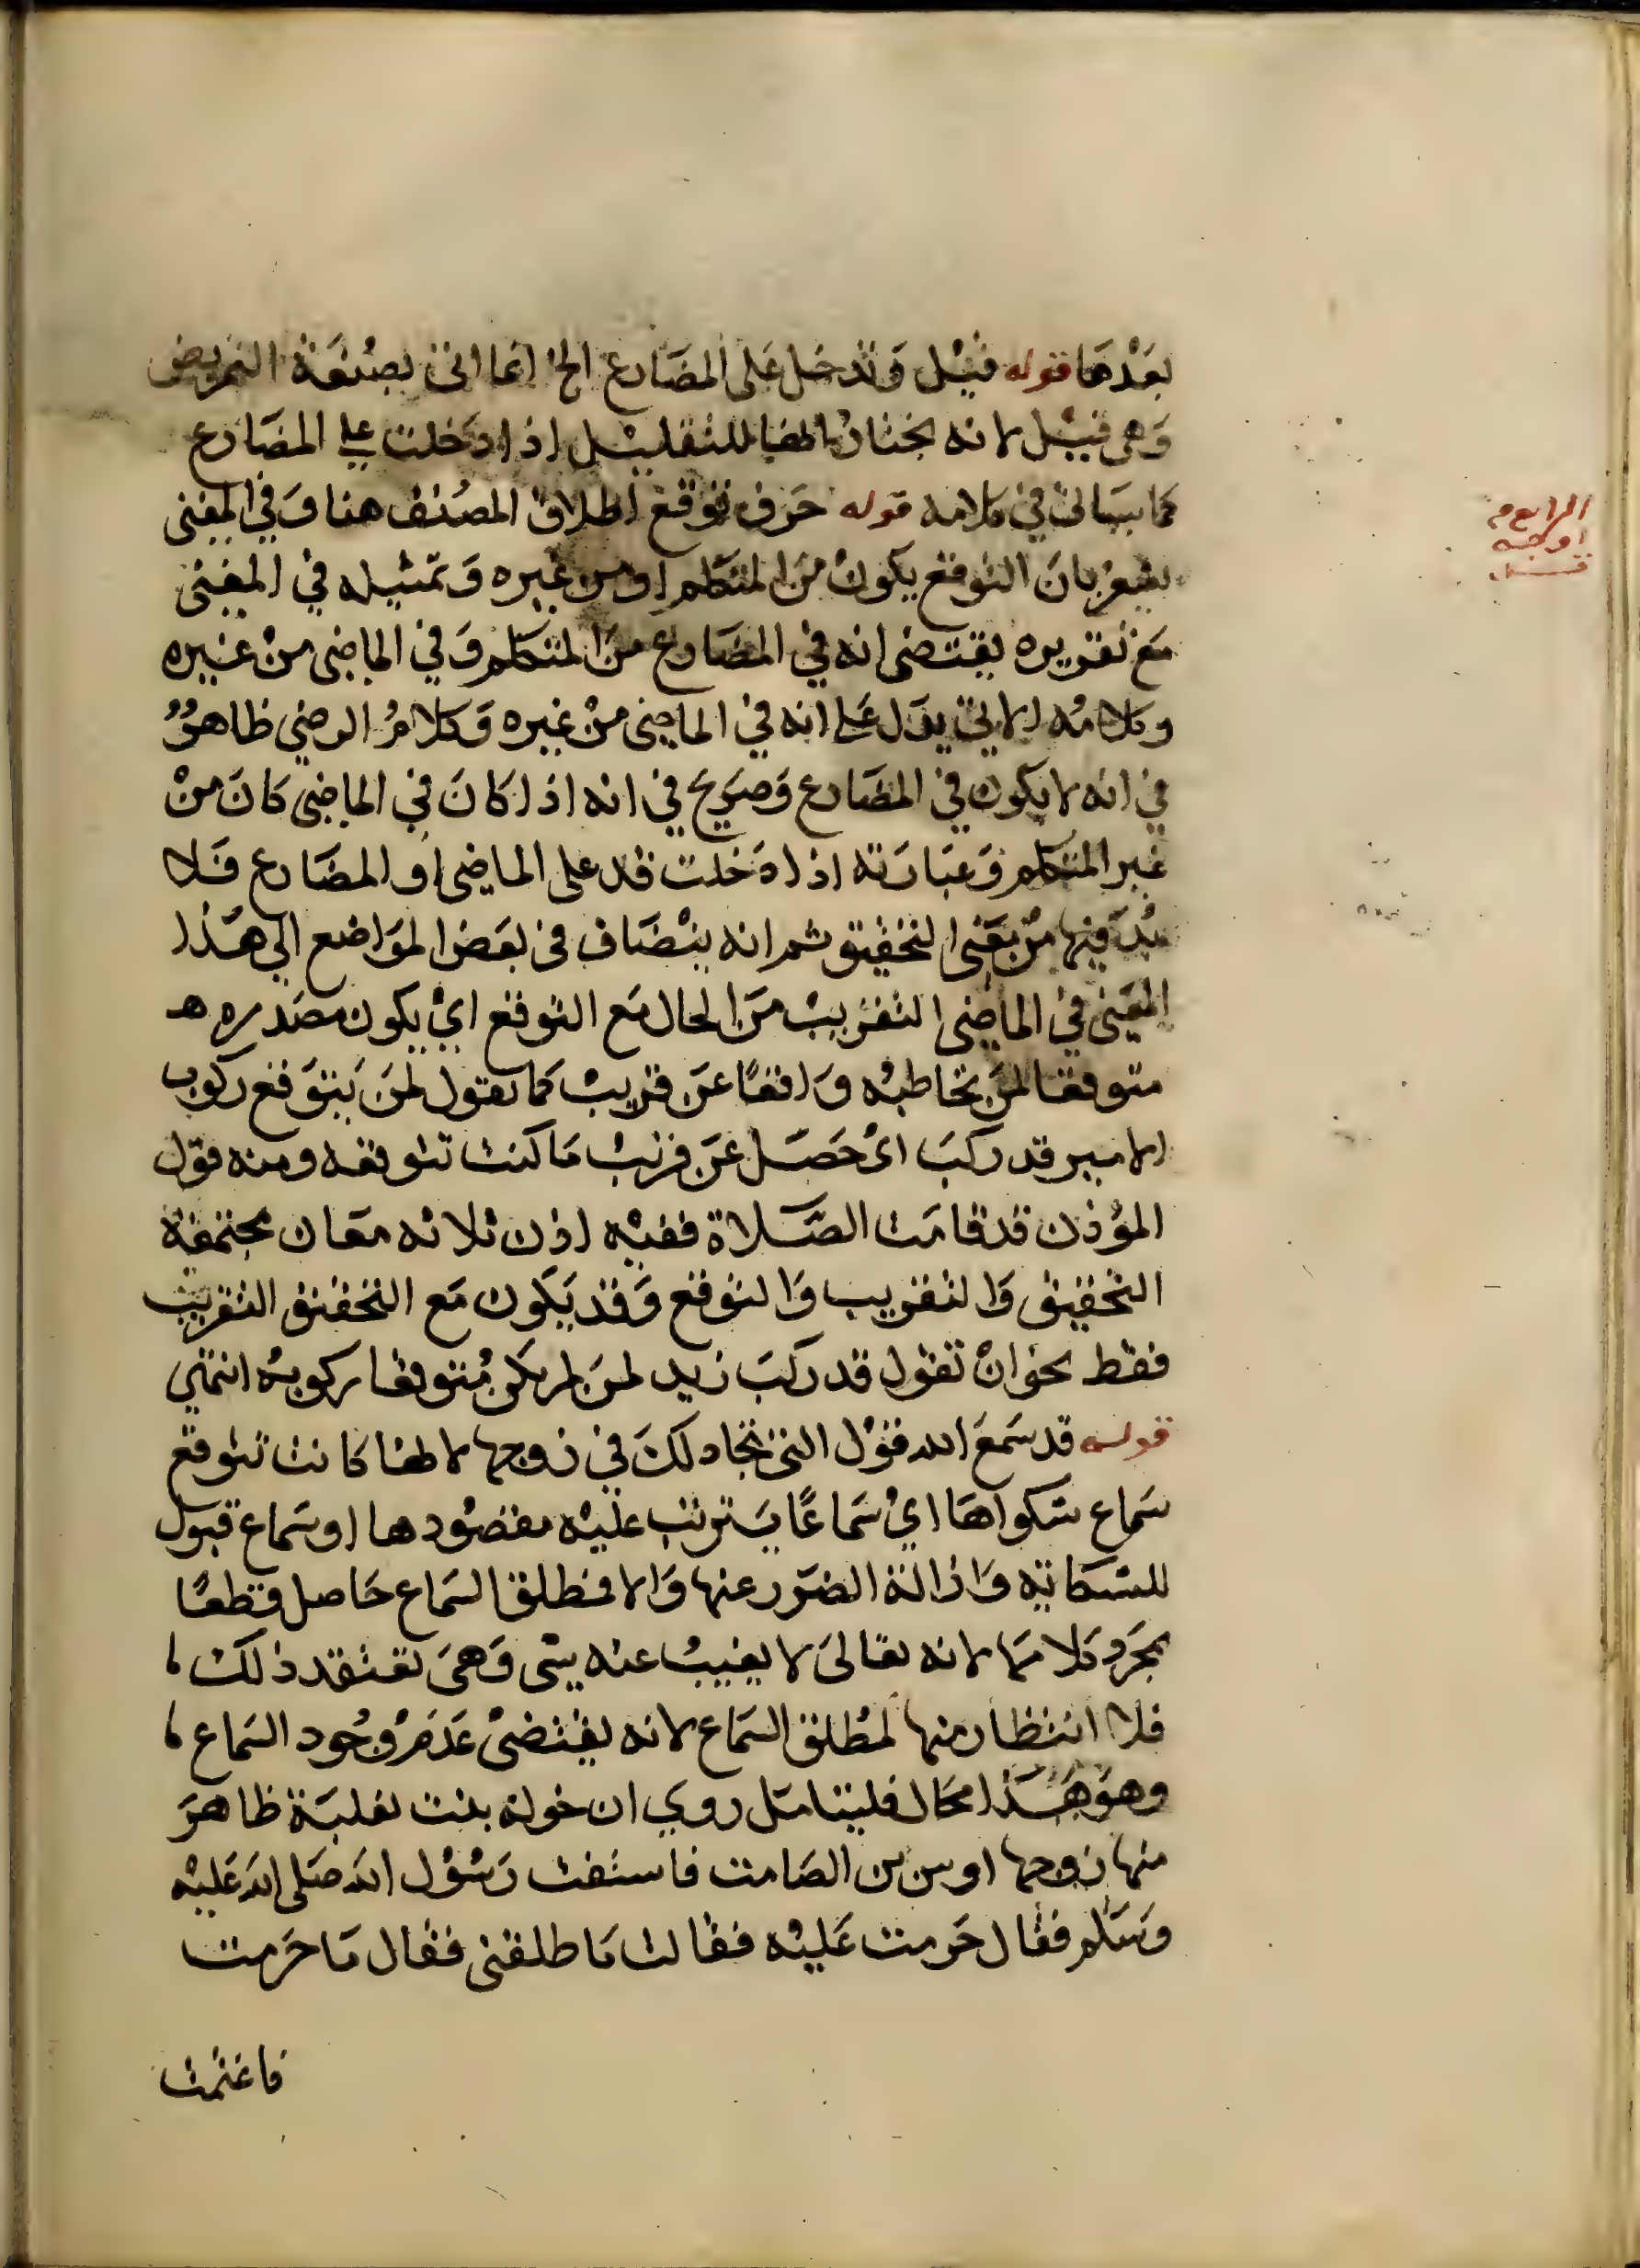 بعدها قوله قيل وتدخل على المضارع الخ انما اتى بصيغة التمريض
وهي قيل لانه يختار انها للتقليل اذا دخلت على المضارع
كما سياتي في كلامه قوله حرف توقع اطلاق المصنف هنا وفي المغني
يشعر بان التوقع يكون من المتكلم او من غيره وتمثيله في المغني
مع تقريره يقتضي انه في المضارع من المتكلم وفي الماضي من غيره
وكلامه الاتي يدل على انه في الماضي من غيره وكلام الرضي ظاهر
في انه لا يكون في المضارع وصريح في انه اذا كان في الماضي كان من
غير المتكلم وعبارته اذا دخلت قد على الماضي او المضارع فلا
بد فيها من معنى التحقيق ثم انه ينضاف في بعض المواضع الى هذا
المعنى في الماضي التقريب من الحال مع التوقع اي يكون مصدره
متوقعا لمن تخاطبه واقعا عن قريب كما تقول لمن يتوقع ركوب
الامير قد ركب اي حصل عن قريب ما كنت تتوقعه ومنه قول
المؤذن قد قامت الصلاة ففيه اذن ثلاثه معان مجتمعة
التحقيق والتقريب والتوقع وقد يكون مع التحقيق التقريب
فقط نحو ان تقول قد ركب زيد لمن لم يكن متوقعا ركوبه انتهى
قوله قد سمع الله قول التي تجادلك في زوجها لانها كانت تتوقع
سماع شكواها اي سماعا يترتب عليه مقصودها او سماع قبول
للشكاية وازالة الضرر عنها والا فمطلق السماع حاصل قطعا
بمجرد كلامها لانه تعالى لا يغيب عنه شى وهي تعتقد ذلك
فلا انتظار منها لمطلق السماع لانه يقتضى عدم وجود السماع
وهو هذا محال فليتامل روي ان خولة بنت ثعلبة ظاهر
منها زوجها اوس بن الصامت فاستفت رسول الله صلى الله عليه
وسلم فقال حرمت عليه فقالت ما طلقني فقال ما حرمت
فاغتمت
الرابع من
اوجه
قد